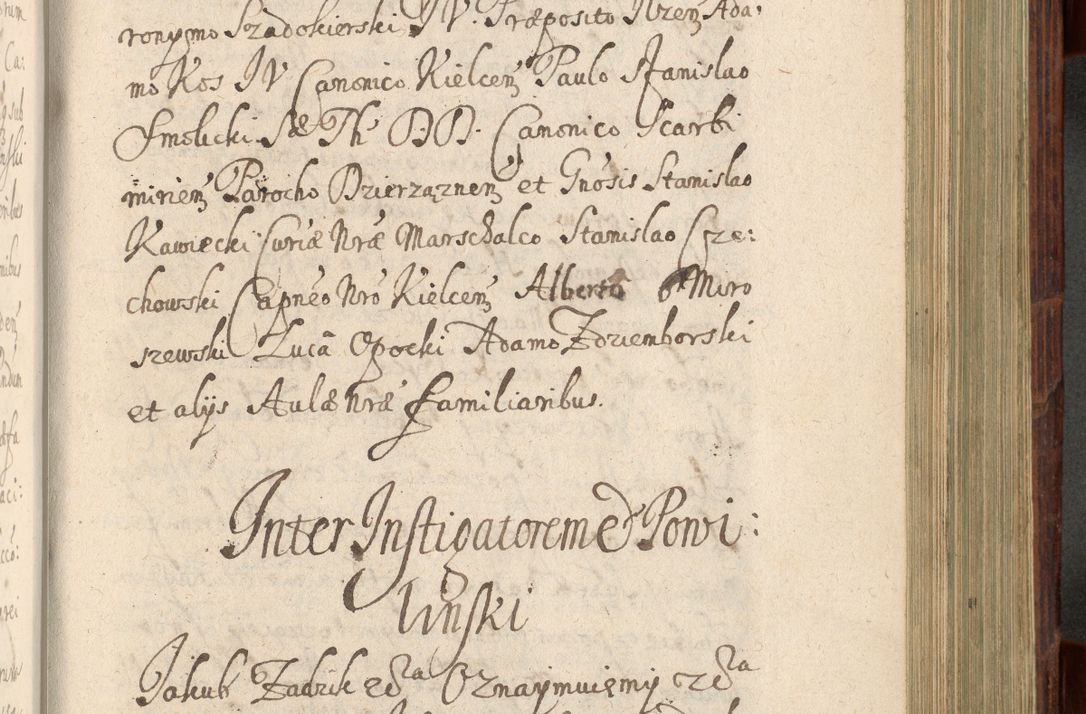 ronymo Szadokierski IV. Præposito Nrem Ada:
mo Kos IV Canonico Kielcem Paulo Stanislao
Smolicki Sæ Th D.D. Canonico Scarbi
miriem Parocho Dzierzaznem et Gnosis Stanislao
Kawiecki Curiæ Nræ Marschalco Stanislao Cze:
chowski Capneo Nro Kielcem Alberto Miro
szewski Luca Opocki Adamo Zdziemborski
et alijs Aulæ Nræ familiaribus.
Inter Instigatorem et Powi:
linski
Jakub Zadzik etca Oznaymuięmy etca